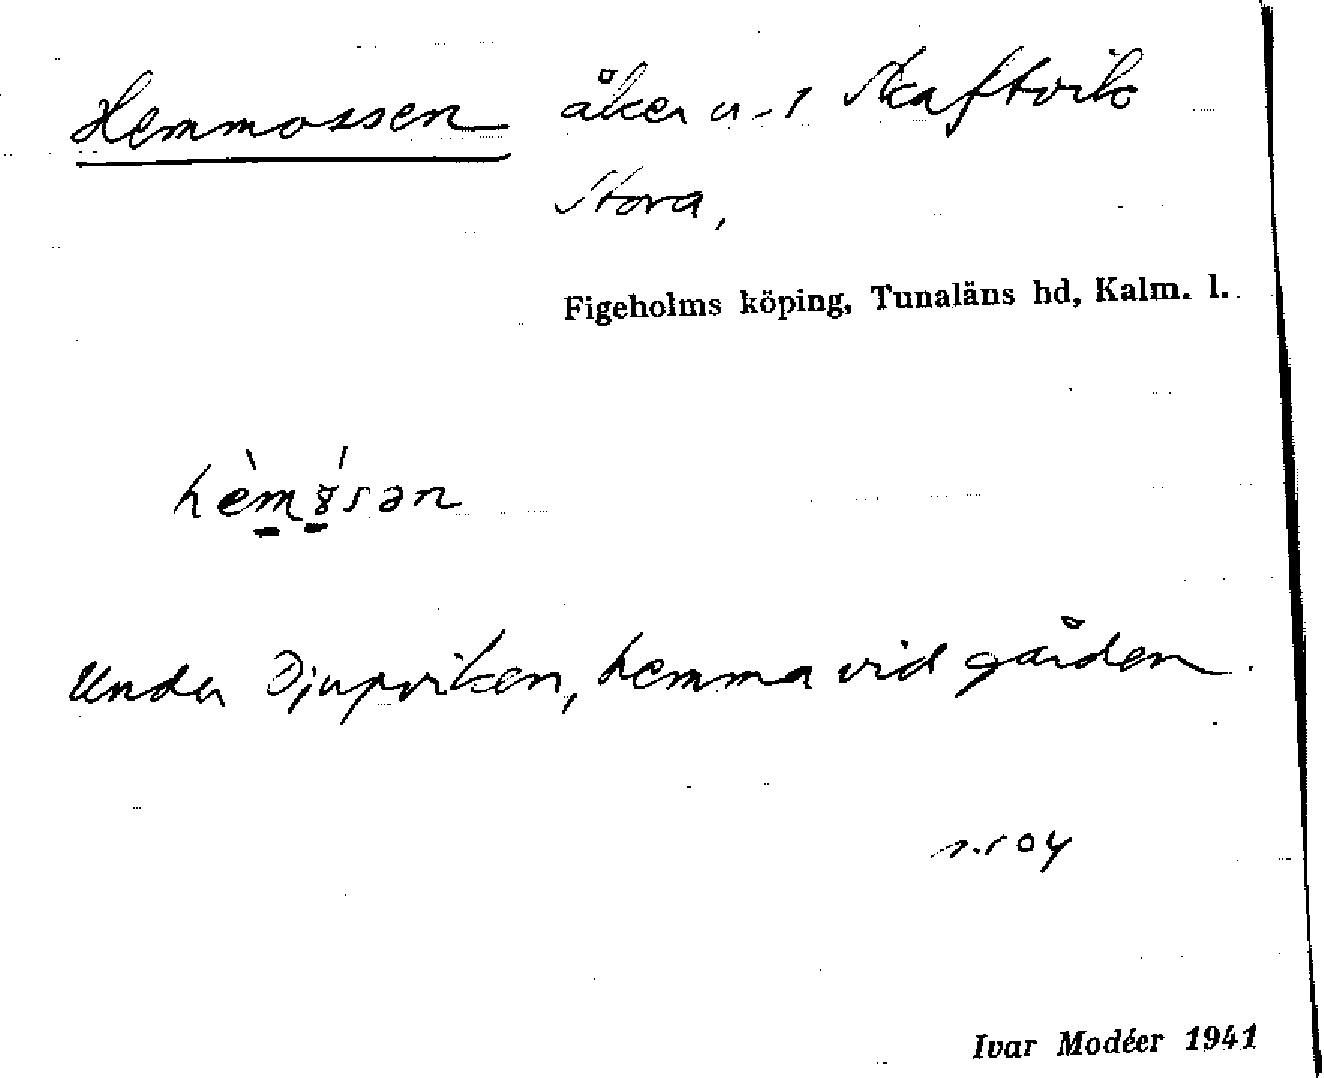 Hemmossen åker n-1 Skaftvik
Stora,
Figeholms köping, Tunaläns hd, Kalm. l.
Under Djupviken, hemma vid gården.
Ivar Modéer 1941